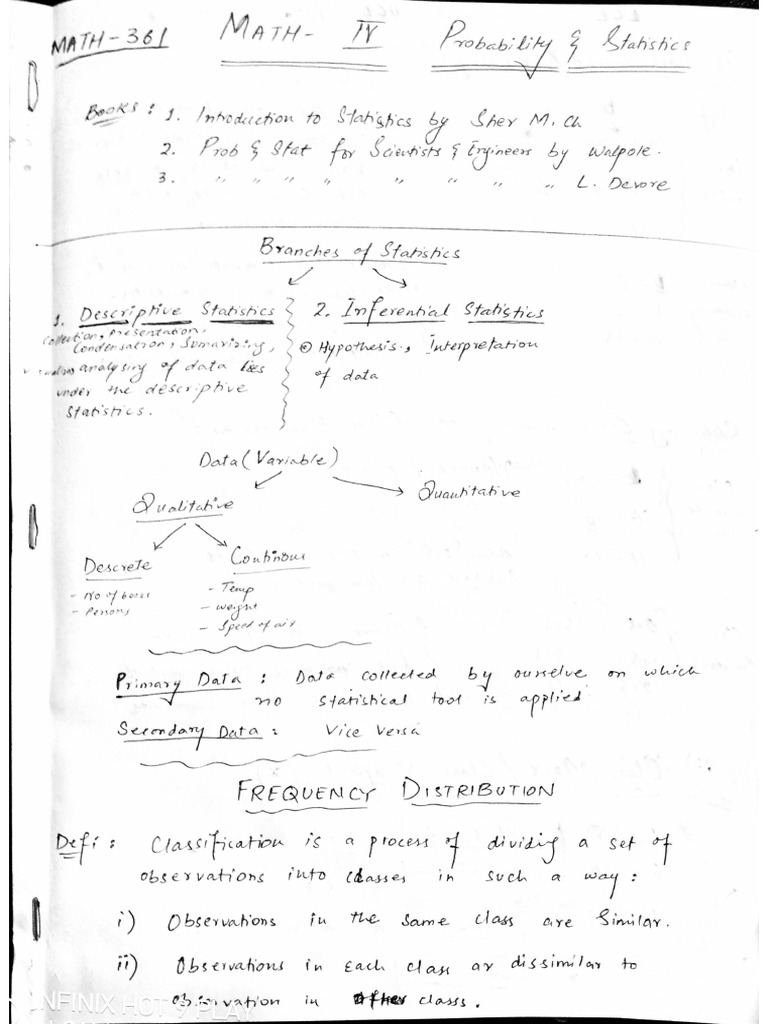 MATH-361 MATH- IV Probability & Statistics
BOOKS : 1. Introduction to Statistics by Sher M. Ch
2. Prob & Stat for Scientists & Engineers by Walpole.
3. " " " " " " " " L. Devore
Branches of Statistics
1. Descriptive Statistics
Collection, Presentation,
Condensation, Sumarizing,
analysing of data lies
under the descriptive
Statistics.
2. Inferential Statistics
Hypothesis., Interpretation
of data
Data (Variable)
Qualitative
Quantitative
Descrete
- No of boxes
- Persons
Continous
- Temp
- weight
- Speed of air
Primary Data : Data collected by ourselve on which
no statistical tool is applied
Secondary Data : Vice Versa
FREQUENCY DISTRIBUTION
Defi : Classification is a process of dividing a set of
observations into classes in such a way :
i) Observations in the same class are Similar.
ii) Observations in each class ar dissimilar to
observation in other classs.
INFINIX HOT 9 PLAY